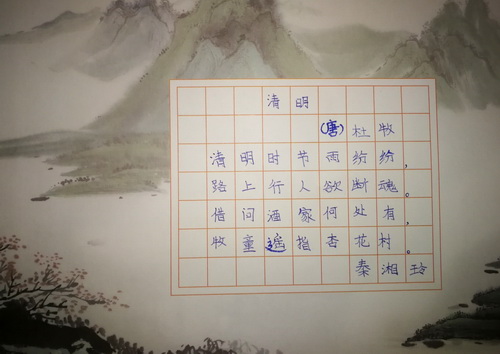 清明
(唐)杜牧
清明时节雨纷纷,
路上行人欲断魂。
借问酒家何处有,
牧童遥指杏花村。
秦湘玲